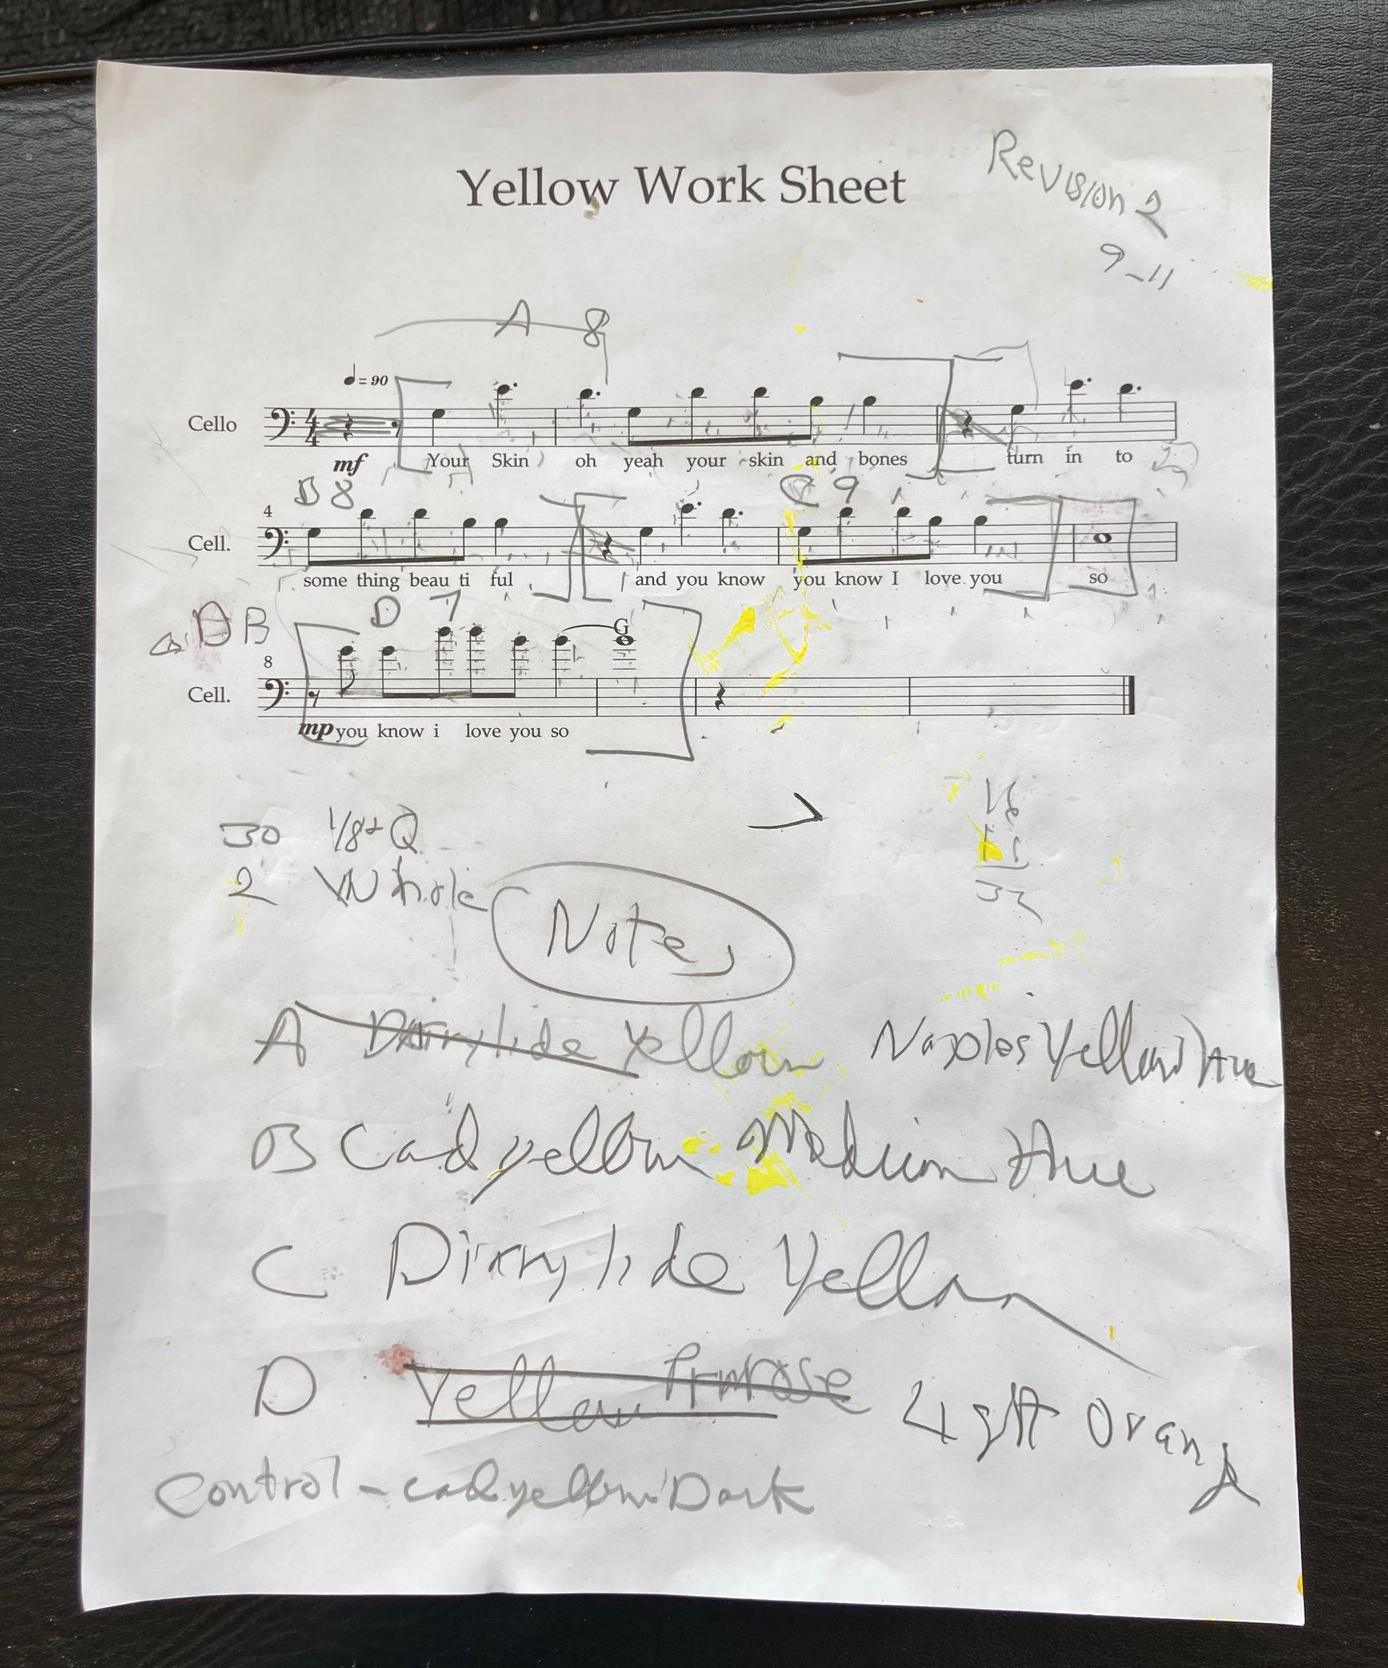 Yellow Work Sheet
Revision 2
9-11
A 8
♩ = 90
Cello
4/4
mf Your Skin oh yeah your skin and bones turn in to
B 8 C 9
4
Cell.
some thing beau ti ful and you know you know I love you so
D B D 7
G
8
Cell.
mp you know i love you so
30 1/8+Q
2 Whole
Notes
32
A Diarylide Yellow Naples Yellow Hue
B Cad yellow Medium Hue
C Diarylide Yellow
D Yellow Primrose Light Orange
Control - cad yellow Dark